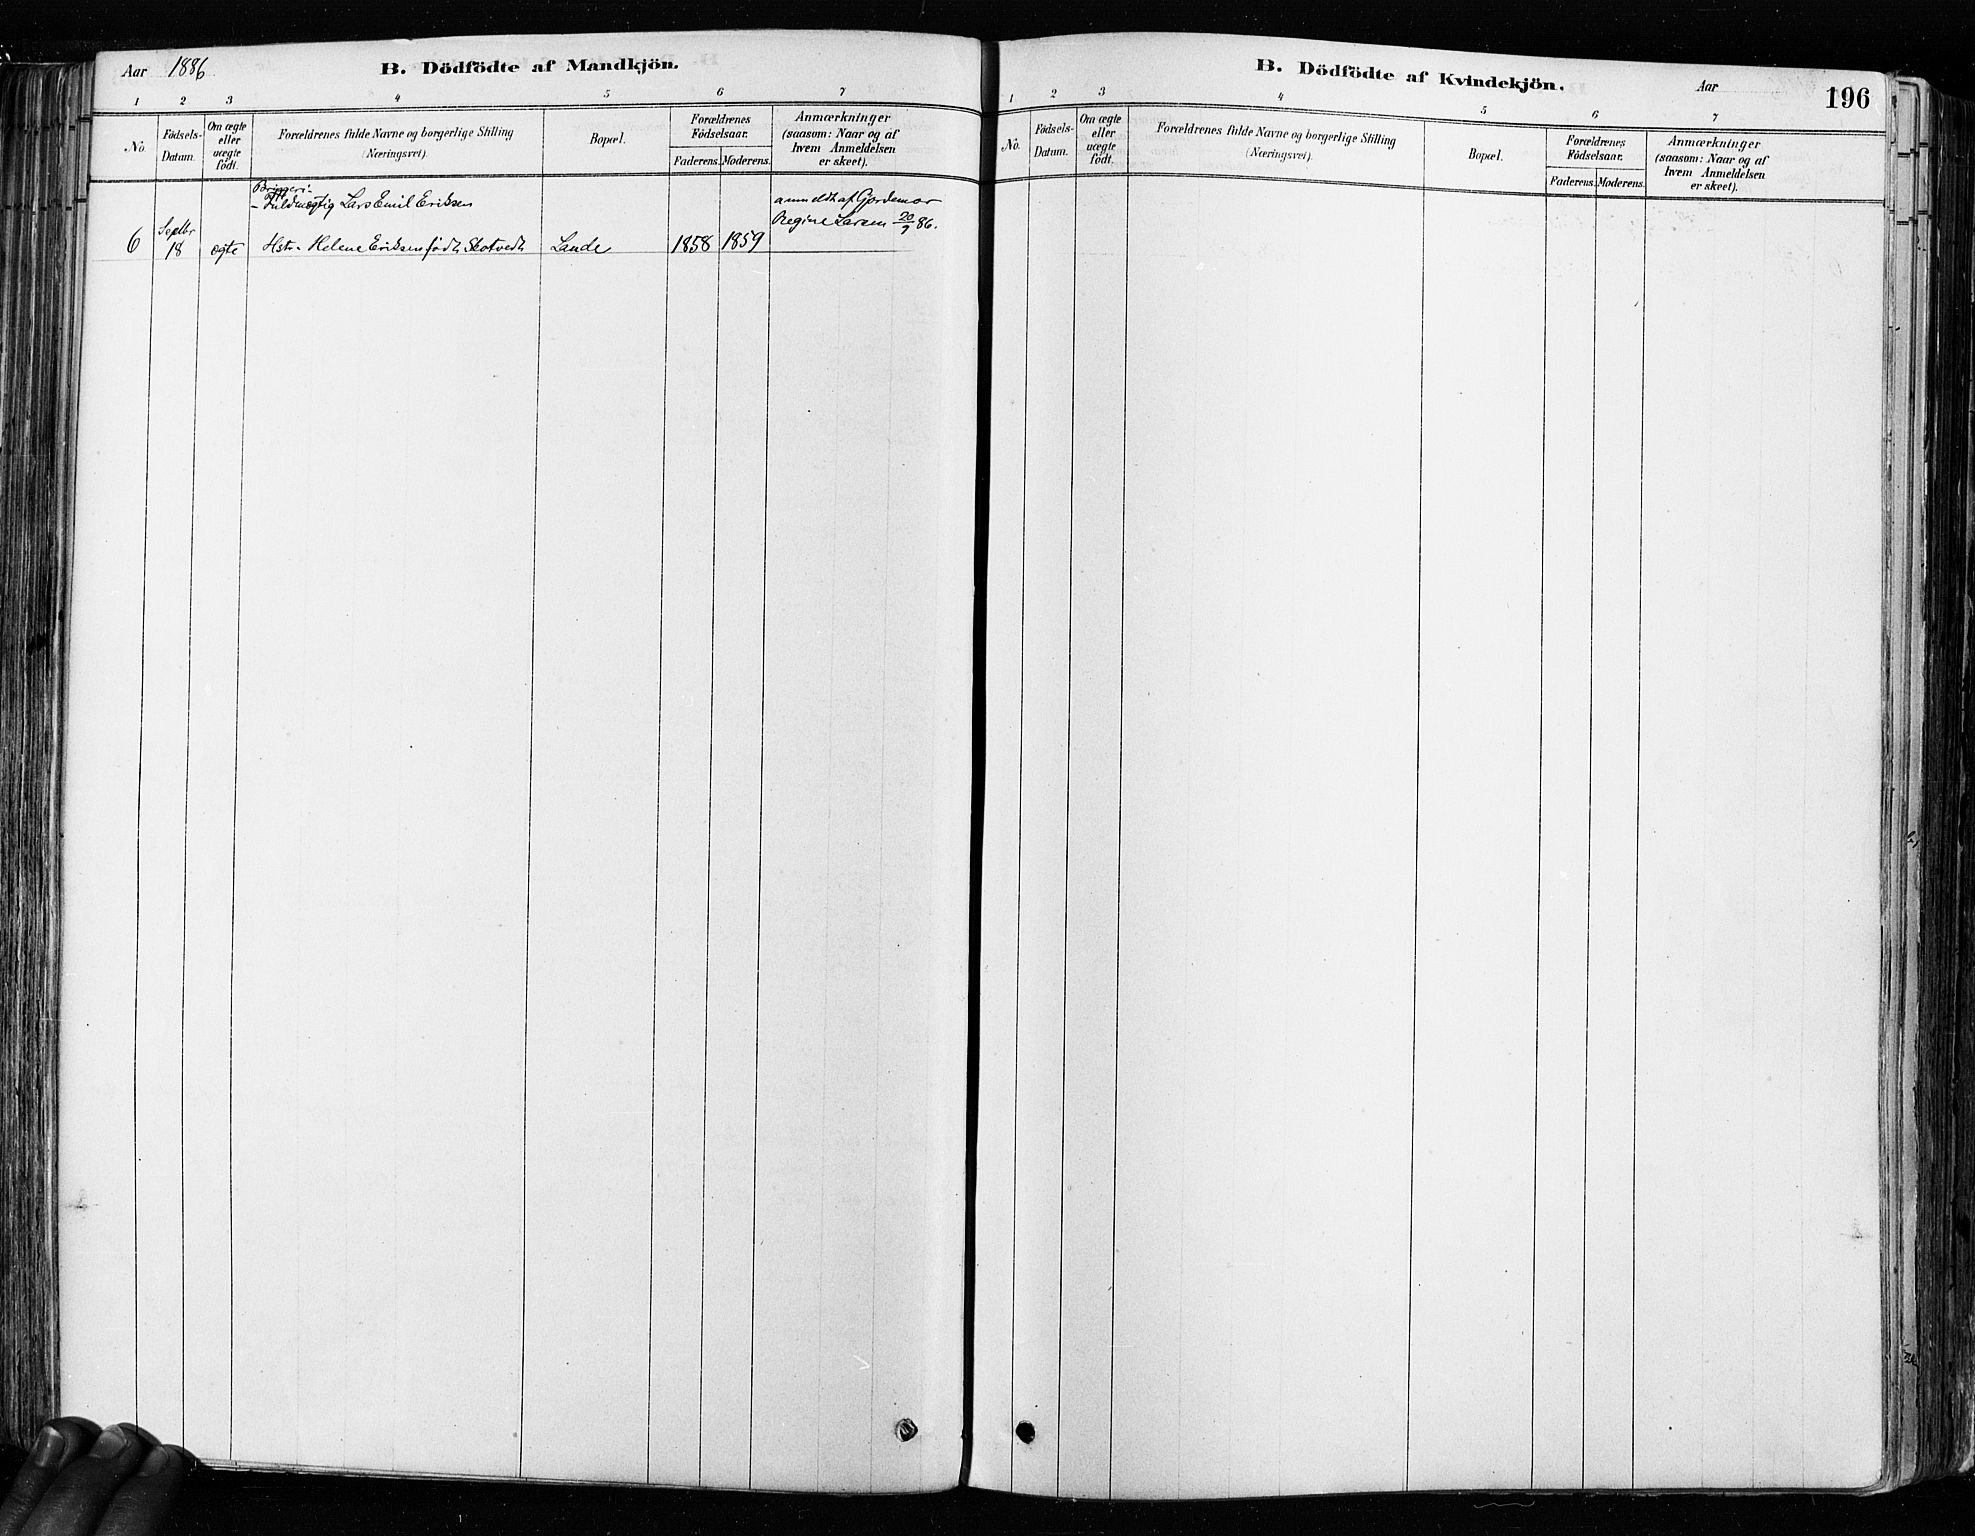 Aar 1886
B. Dödfödte af Mandkjön.
1 2 3 4 5 6 7
No.
Födsels-
Datum.
Om ægte
eller
uægte
födt.
Forældrenes fulde Navne og borgerlige Stilling
(Næringsvei).
Bopæl.
Forældrenes
Födselsaar.
Faderens. Moderens.
Anmærkninger
(saasom: Naar og af
hvem Anmeldelsen
er skeet).
Bryggeri-
Fuldmægtig Lars Emil Eriksen
anmeldt af Gjordemor
Regine Larsen 20/9 86.
6 Septbr 18 ægte Hstr. Helene Eriksen født Skotvedt Lande 1858 1859
B. Dödfödte af Kvindekjön.
Aar
196
1 2 3 4 5 6 7
No.
Födsels-
Datum.
Om ægte
eller
uægte
födt.
Forældrenes fulde Navne og borgerlige Stilling
(Næringsvei).
Bopæl.
Forældrenes
Födselsaar.
Faderens. Moderens.
Anmærkninger
(saasom: Naar og af
hvem Anmeldelsen
er skeet).